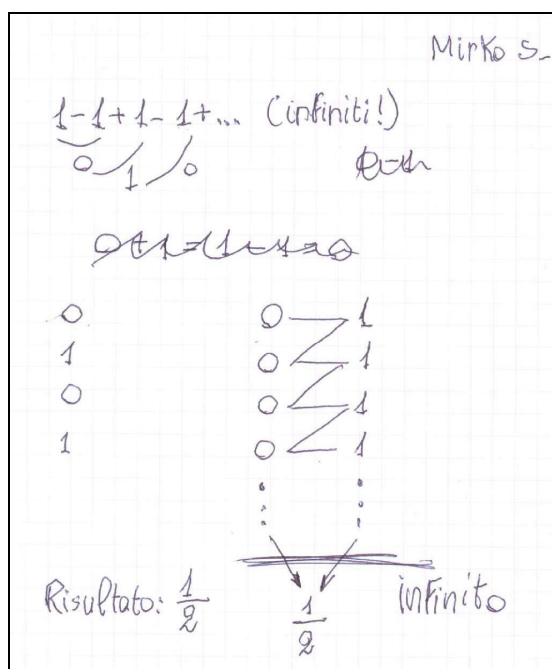 Mirko S.
1-1+1-1+... (infiniti!)
0 1 0
0+1=1 1-1=0
0 0 1
1 0 1
0 0 1
1 0 1
Risultato: 1/2 1/2 infinito